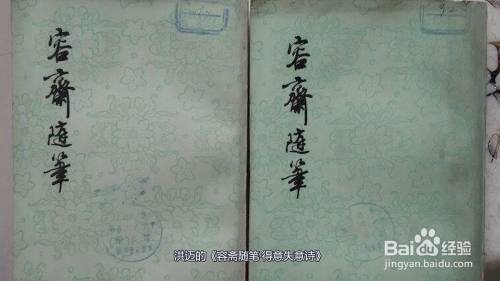 容齋隨筆
容齋隨筆
洪迈的《容斋随笔·得意失意诗》
Baidu经验
jingyan.baidu.com